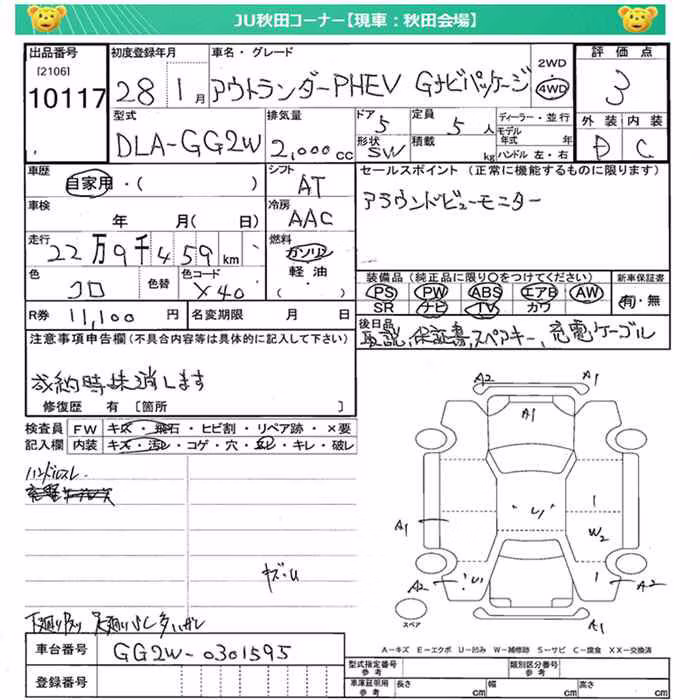 JU秋田コーナー【現車：秋田会場】
出品番号 [2106] 10117
初度登録年月 28 1月
車名・グレード アウトランダーPHEV Gナビパッケージ
2WD・4WD
評価点 3
外装 D 内装 C
型式 DLA-GG2W
排気量 2,000cc
ドア 5
形状 SW
定員 5人
積載 kg
ディーラー・並行
モデル年式 年
ハンドル 左・右
車歴 自家用・( )
シフト AT
セールスポイント (正常に機能するものに限ります)
アラウンドビューモニター
車検 年 月( 日)
冷房 AAC
走行 22万9千459km
燃料 ガソリン 軽油・( )
色 クロ 色替 色コード X40
装備品 (純正品に限り○をつけてください)
PS PW ABS エアB AW
SR ナビ TV カワ
新車保証書 有・無
R券 11,100円 名変期限 月 日
後日品 取説、保証書、スペアキー、充電ケーブル
注意事項申告欄(不具合内容等は具体的に記入して下さい)
成約時抹消します
修復歴 有 [箇所 ]
検査員記入欄
FW キズ・飛石・ヒビ割・リペア跡・×要
内装 キズ・汚レ・コゲ・穴・ヌレ・キレ・破レ
ハンドルスレ
キズ・U
A2 A1
A1
U1
1
W2
A1
A2 U1
1 A2
スペア
A1
A－キズ E－エクボ U－凹み W－補修跡 S－サビ C－腐食 XX－交換済
車台番号 GG2W-0301595
登録番号
型式指定番号 参考
類別区分番号 参考
車庫証明用 参考 長さ cm 幅 cm 高さ cm